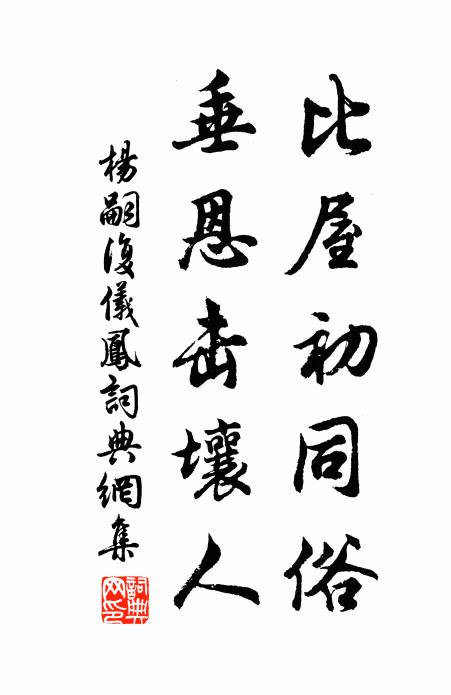 比屋初同俗
垂恩击壤人
楊嗣復儀鳳詞典網集
詞典網印